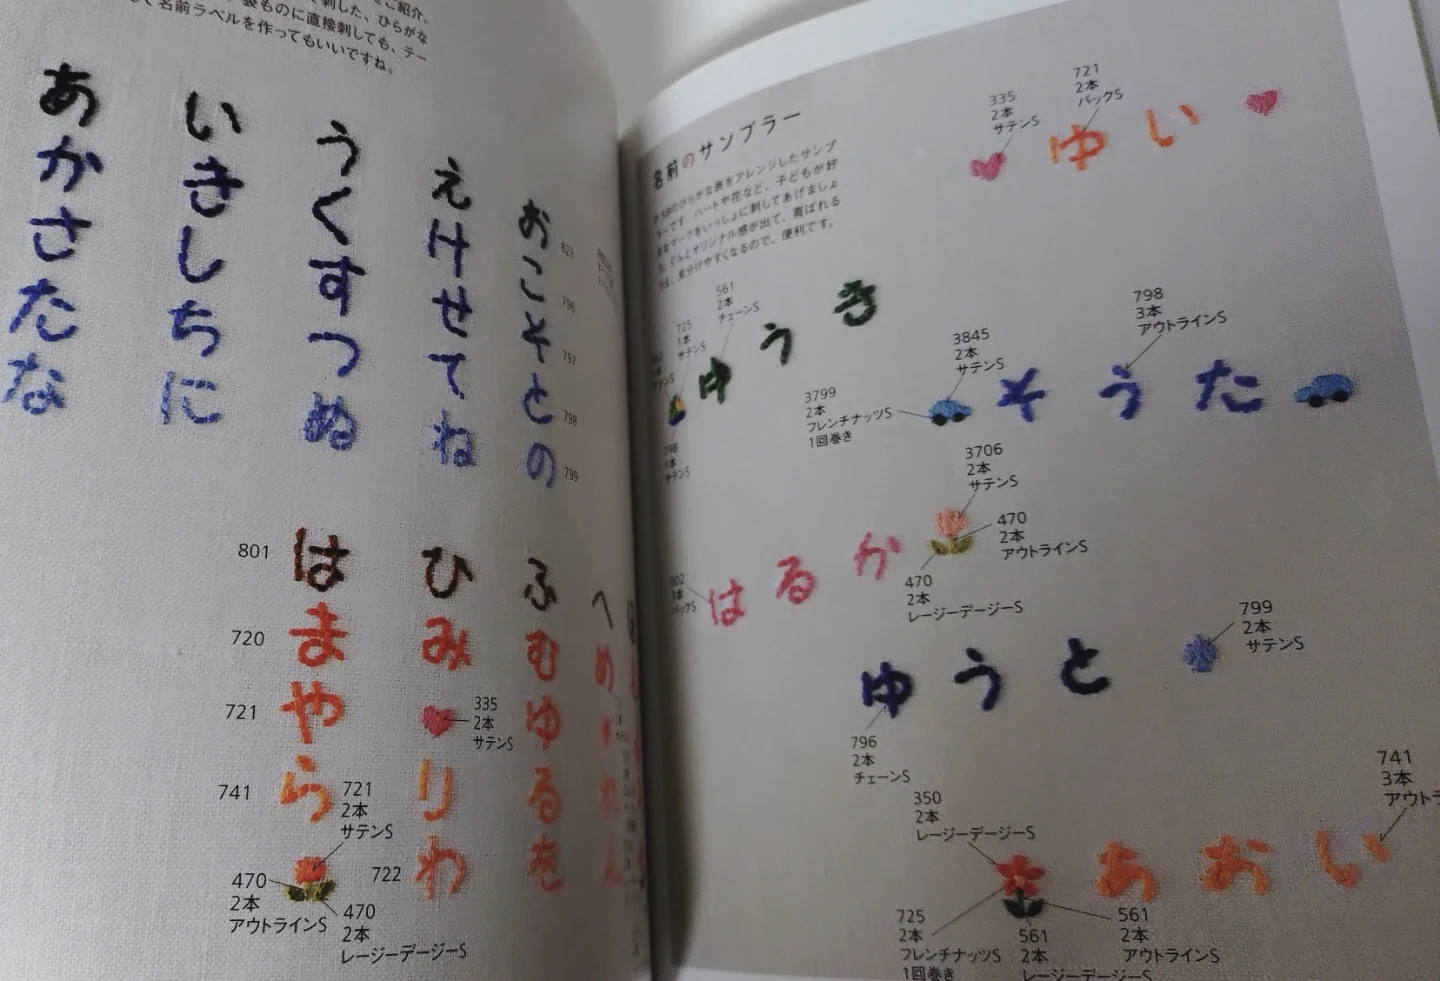 ご紹介。
刺した、ひらがな
袋ものに直接刺しても、テー
て名前ラベルを作ってもいいですね。
あ い う え お
か き く け こ
さ し す せ そ
た ち つ て と
な に ぬ ね の
823
796
797
798
799
801
は ひ ふ へ
720
ま み む め
721
や ゆ
335
2本
サテンS
741
ら り る
721
2本
サテンS
722
わ を
470
2本
アウトラインS
470
2本
レージーデージーS
名前のサンプラー
のひらがな表をアレンジしたサンプ
ラーです。ハートや花など、子どもが好
きなマークをいっしょに刺してあげましょ
う。ぐんとオリジナル感が出て、喜ばれる
見分けやすくなるので、便利です。
335
2本
サテンS
721
2本
バックS
ゆい
561
2本
チェーンS
725
1本
サテンS
サテンS
798
1本
サテンS
ゆうき
3845
2本
サテンS
798
3本
アウトラインS
3799
2本
フレンチナッツS
1回巻き
そうた
3706
2本
サテンS
470
2本
アウトラインS
470
2本
レージーデージーS
602
バックS
はるか
799
2本
サテンS
ゆうと
796
2本
チェーンS
741
3本
アウトラ
350
2本
レージーデージーS
あおい
725
2本
フレンチナッツS
1回巻き
561
2本
レージーデージーS
561
2本
アウトラインS